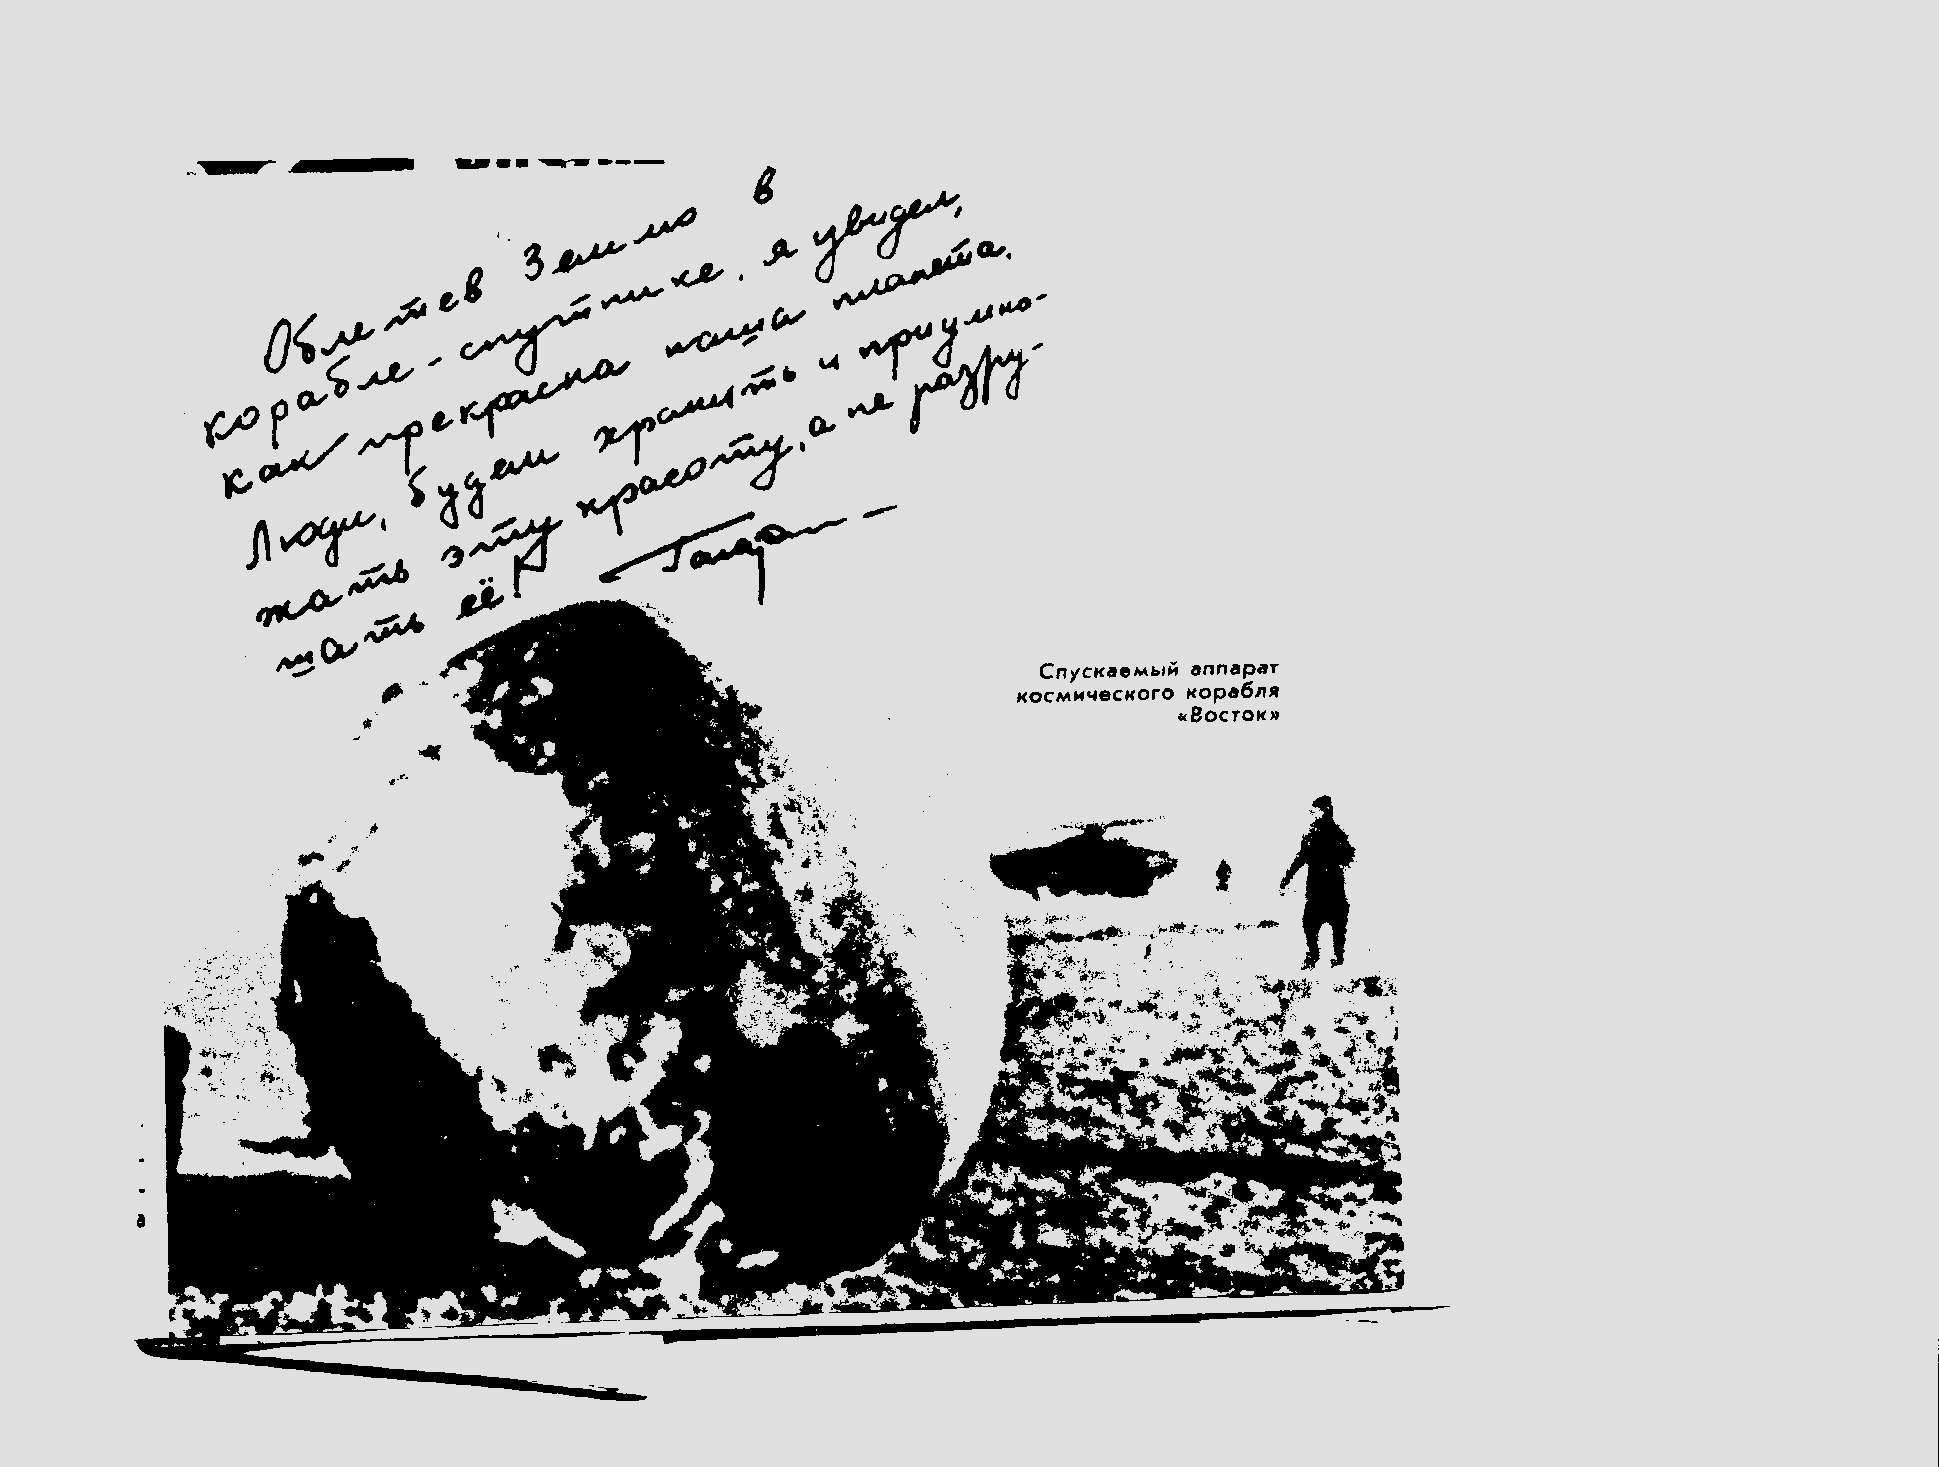 Облетев Землю в
корабле-спутнике, я увидел,
как прекрасна наша планета.
Люди, будем хранить и приумно-
жать эту красоту, а не разру-
шать её!
Гагарин
Спускаемый аппарат
космического корабля
«Восток»